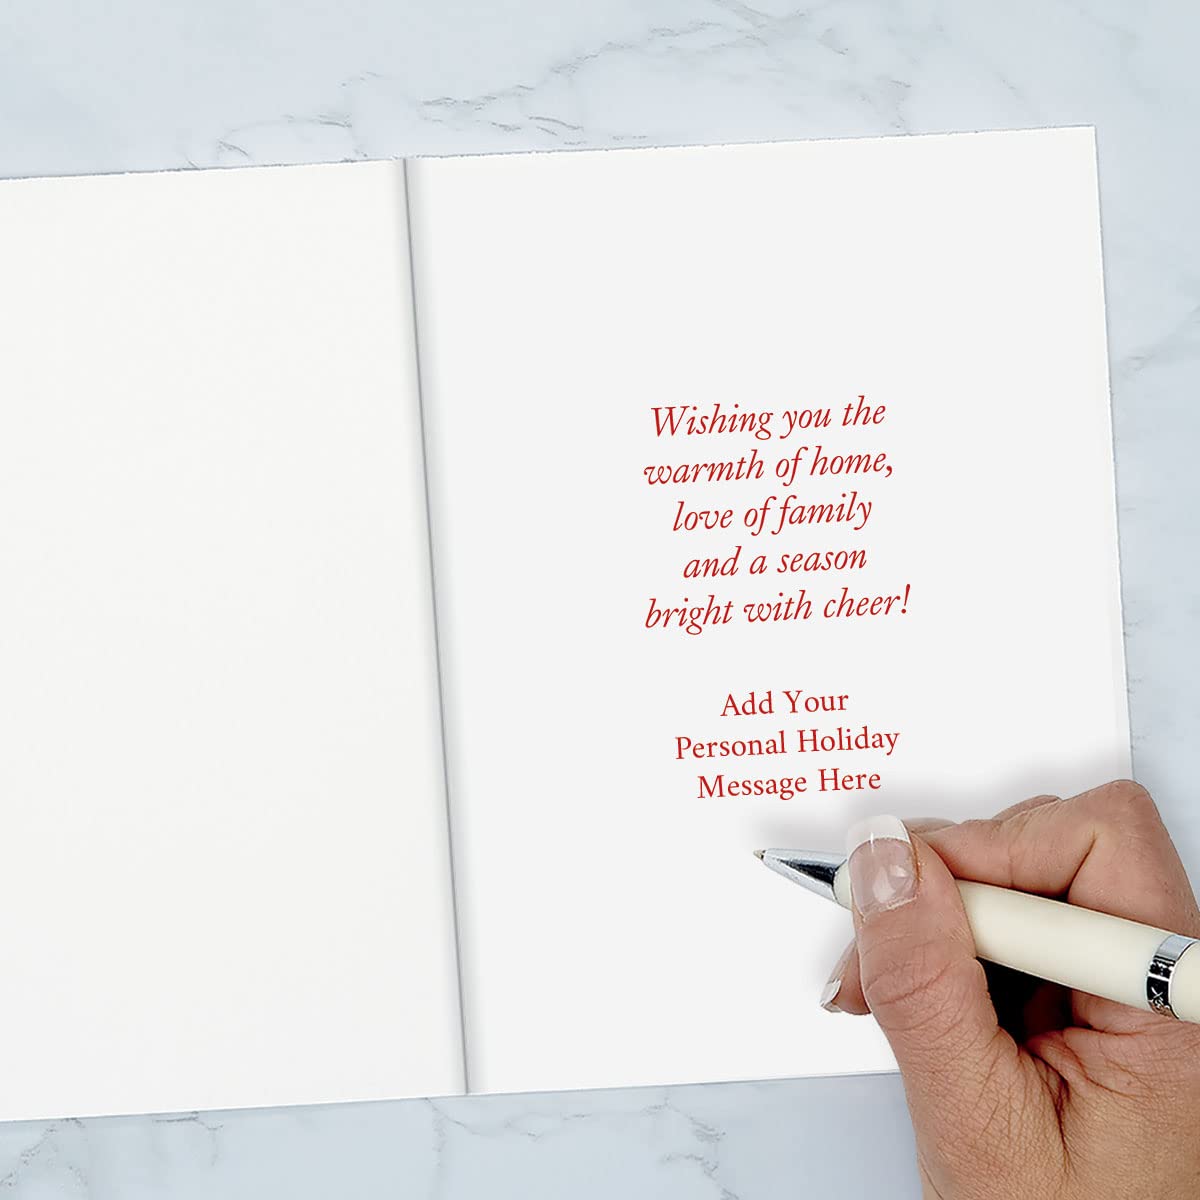 Wishing you the
warmth of home,
love of family
and a season
bright with cheer!
Add Your
Personal Holiday
Message Here